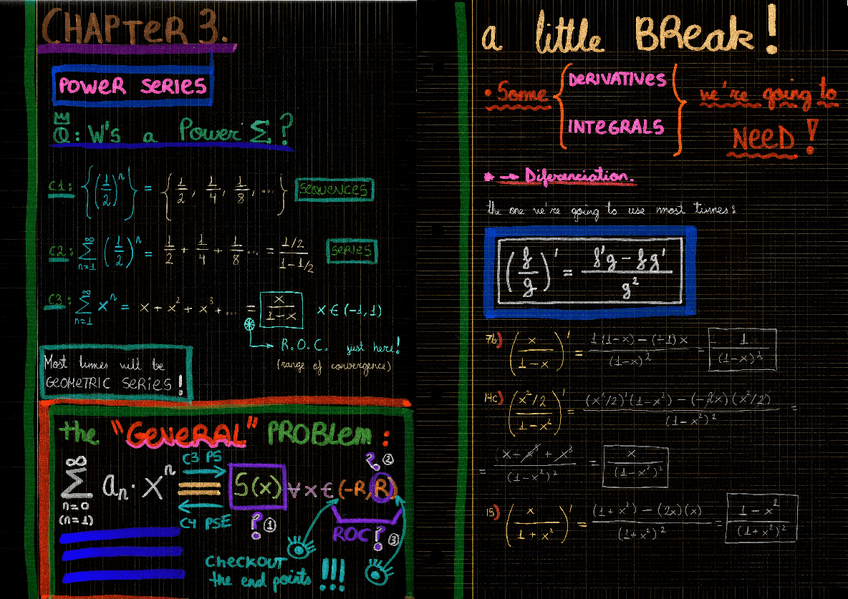 CHAPTER 3.
POWER SERIES
Q: W's a Power Σ?
C1: {(1/2)^n} = {1/2, 1/4, 1/8, ...} SEQUENCES
C2: ∑_{n=1}^∞ (1/2)^n = 1/2 + 1/4 + 1/8 ... = (1/2)/(1-1/2) SERIES
C3: ∑_{n=1}^∞ x^n = x + x² + x³ ... = x/(1-x) x ∈ (-1,1)
R.O.C. just here!
(range of convergence)
Most times will be
GEOMETRIC SERIES!
the "GENERAL" PROBLEM:
C3 PS
∑_{n=0 (n=1)}^∞ a_n · x^n = S(x) ∀x ∈ (-R, R)
C4 PSE
? ①
? ②
ROC? ③
CHECKOUT
the end points !!!
a little BReak!
• Some { DERIVATIVES INTEGRALS } we're going to
NEED!
* → Diferenciation.
the one we're going to use most times:
(f/g)' = (f'g - fg')/g²
7b) (x/(1-x))' = (1(1-x) - (-1)x)/(1-x)² = 1/(1-x)²
14c) ((x²/2)/(1-x²))' = ((x²/2)'(1-x²) - (-2x)(x²/2))/(1-x²)² =
= (x - x³ + x³)/(1-x²)² = x/(1-x²)²
15) (x/(1+x²))' = ((1+x²) - (2x)(x))/(1+x²)² = (1-x²)/(1+x²)²